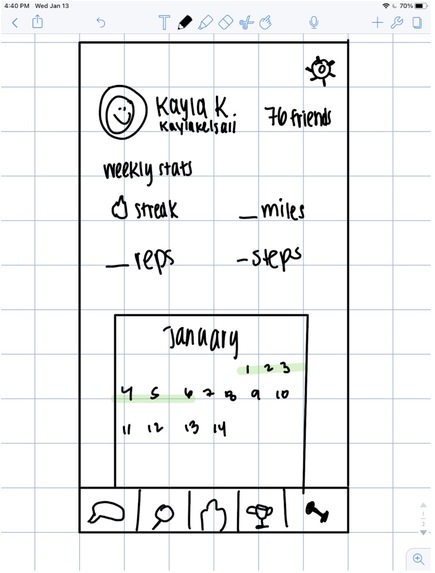 4:40 PM Wed Jan 13
70%
Kayla K.
kaylakelsall
76 friends
weekly stats
streak
_ miles
_ reps
- steps
January
1 2 3
4 5 6 7 8 9 10
11 12 13 14